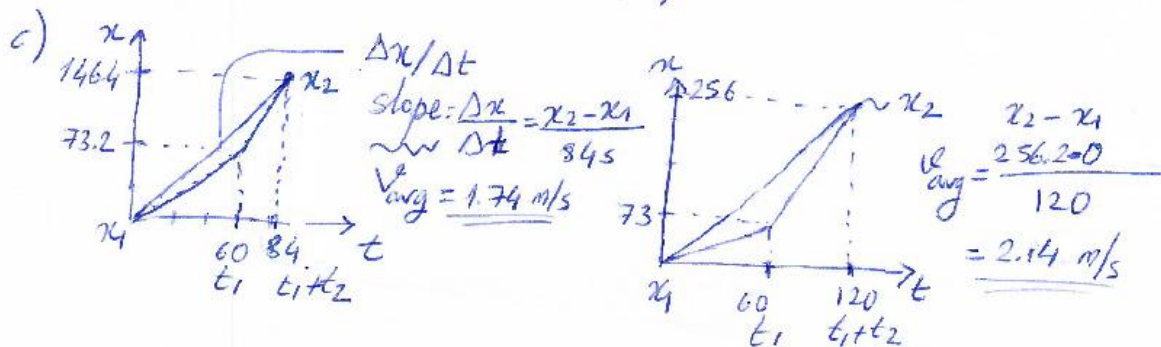 c)
x
146.4
x2
73.2
x1
60 84
t1 t1+t2
t
Δx/Δt
slope: Δx/Δt = x2-x1/84s
Vavg = 1.74 m/s
x
256
x2
73
x1
60 120
t1 t1+t2
t
x2-x1
vavg = 256.2-0/120
= 2.14 m/s